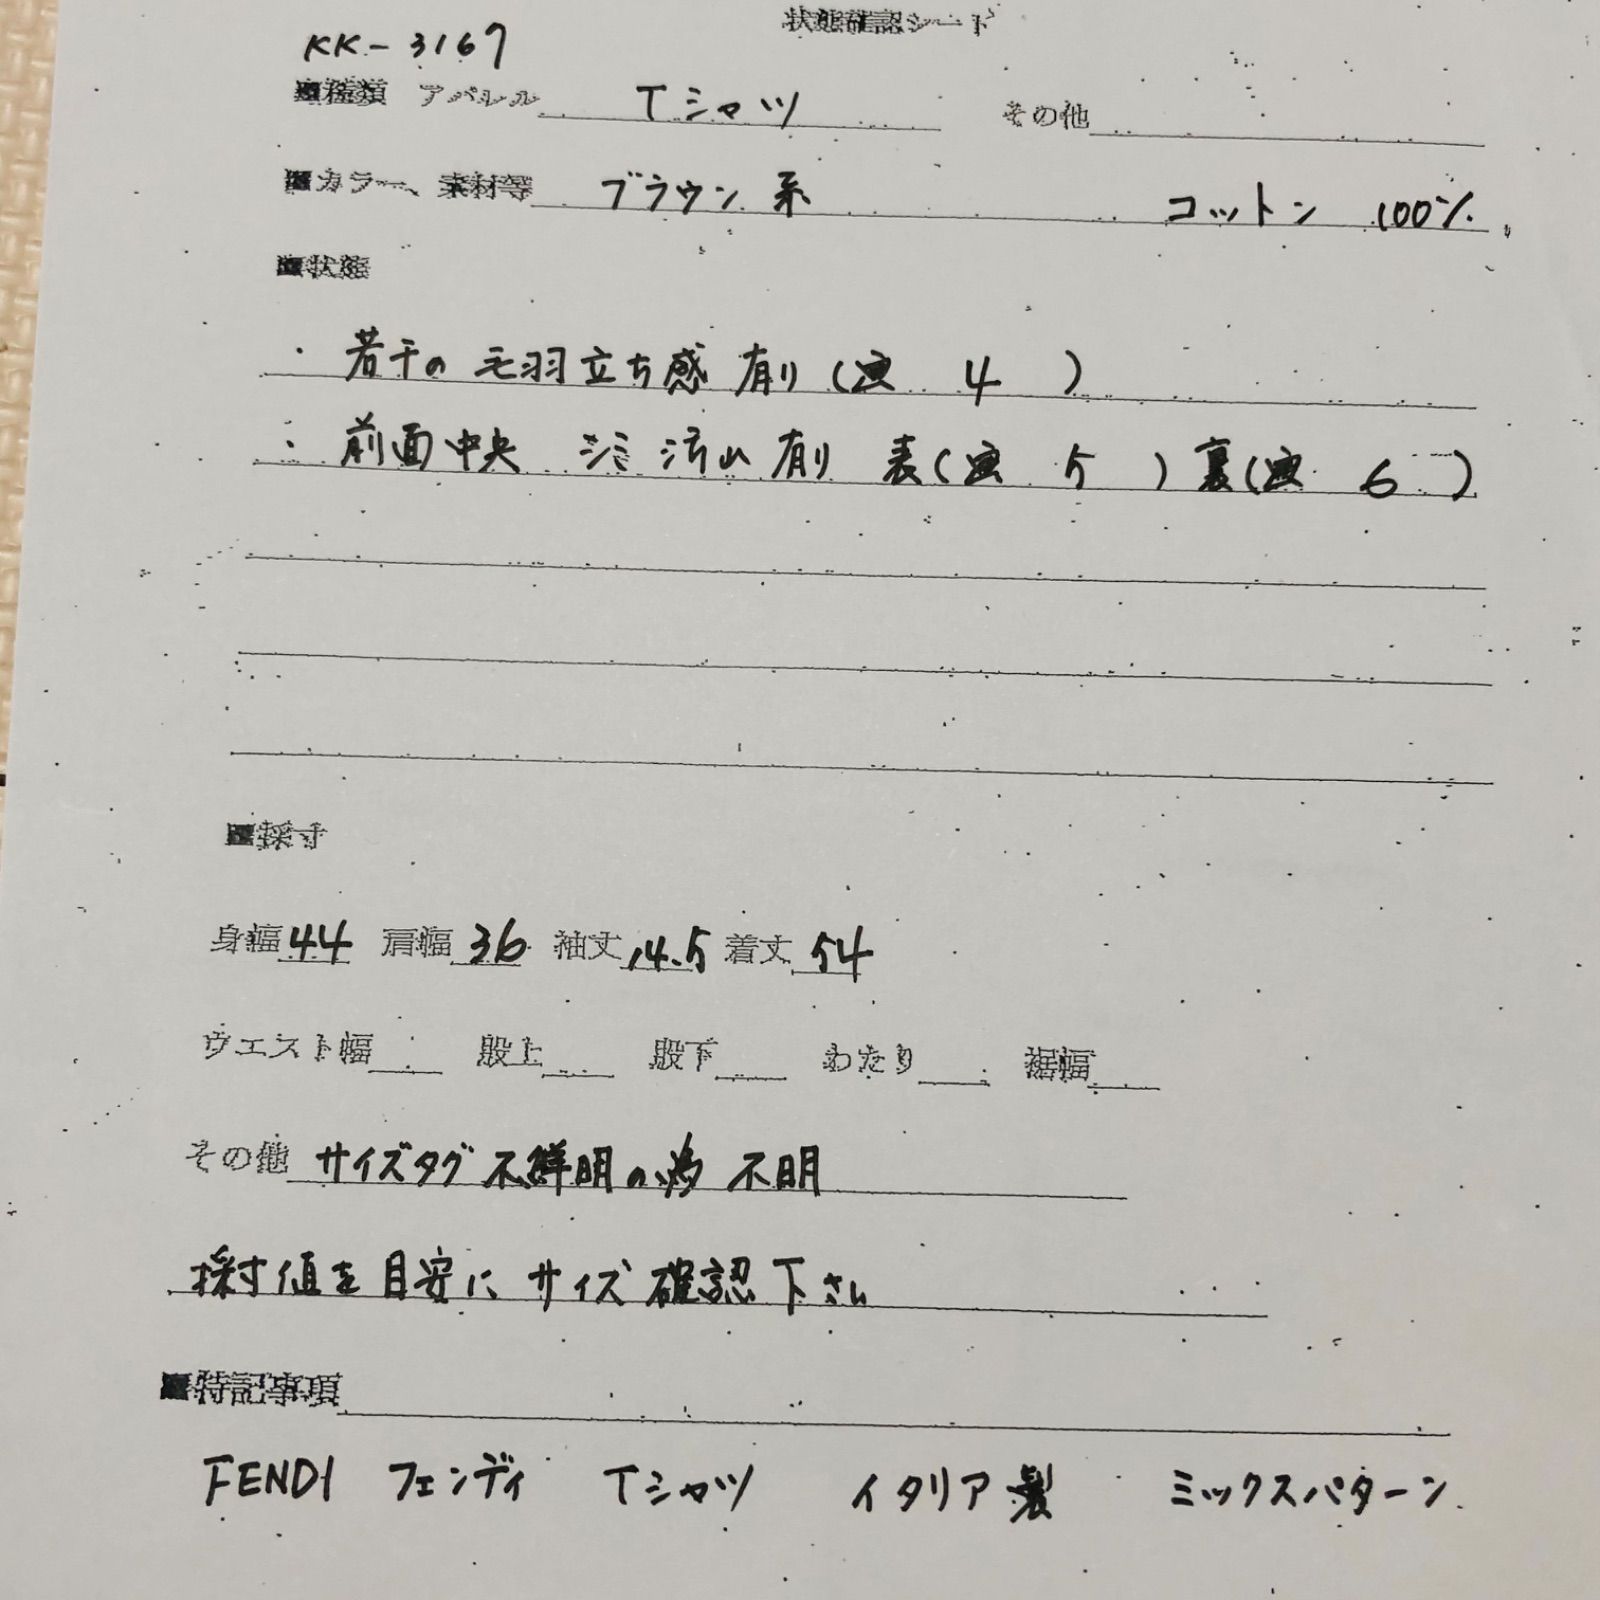 状態確認シート
KK-3167
■種類 アパレル Tシャツ その他
■カラー、素材等 ブラウン系 コットン 100%
■状態
・若干の毛羽立ち感有り(画 4 )
・前面中央 シミ汚れ有り 表(画 5 )裏(画 6 )
■採寸
身幅44 肩幅36 袖丈14.5 着丈54
ウエスト幅 股上 股下 わたり 裾幅
その他 サイズタグ不鮮明の為 不明
採寸値を目安にサイズ確認下さい
■特記事項
FENDI フェンディ Tシャツ イタリア製 ミックスパターン